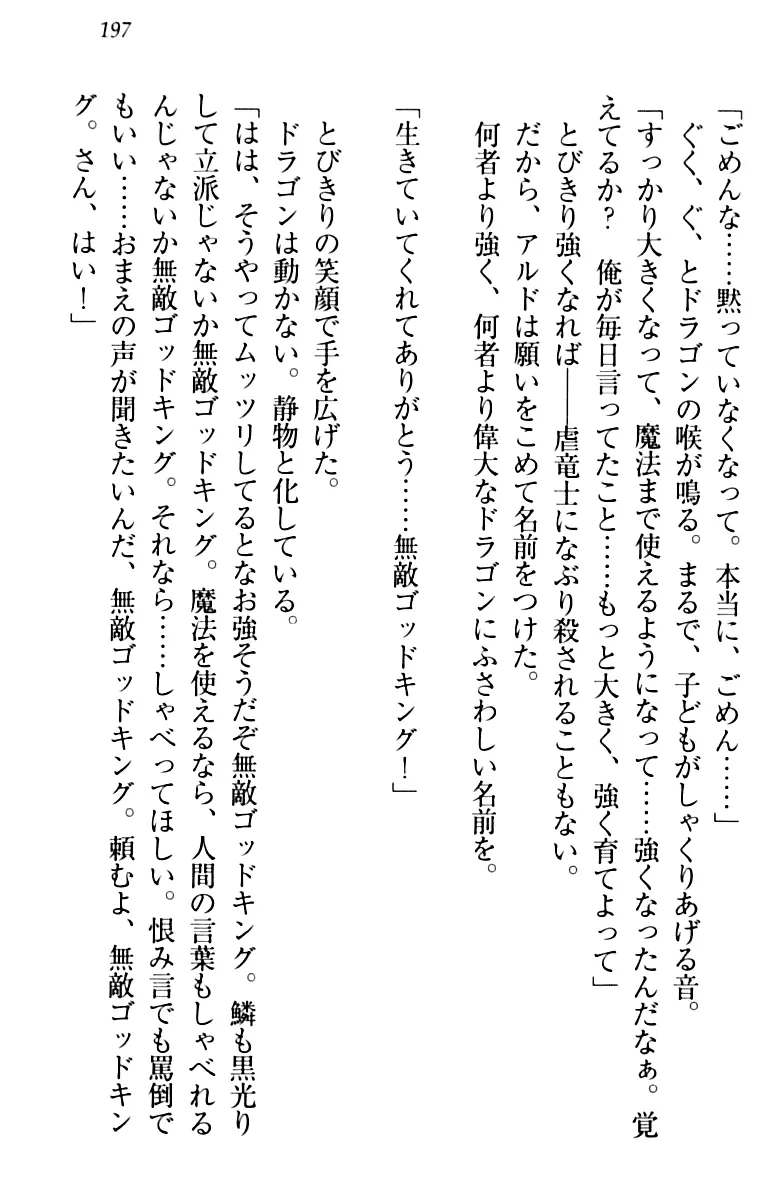 197
「ごめんな……黙っていなくなって。本当に、ごめん……」
ぐく、ぐ、とドラゴンの喉が鳴る。まるで、子どもがしゃくりあげる音。
「すっかり大きくなって、魔法まで使えるようになって……強くなったんだなぁ。覚
えてるか？　俺が毎日言ってたこと……もっと大きく、強く育てよって」
とびきり強くなれば――虐竜士になぶり殺されることもない。
だから、アルドは願いをこめて名前をつけた。
何者より強く、何者より偉大なドラゴンにふさわしい名前を。
「生きていてくれてありがとう……無敵ゴッドキング！」
とびきりの笑顔で手を広げた。
ドラゴンは動かない。静物と化している。
「はは、そうやってムッツリしてるとなお強そうだぞ無敵ゴッドキング。鱗も黒光り
して立派じゃないか無敵ゴッドキング。魔法を使えるなら、人間の言葉もしゃべれる
んじゃないか無敵ゴッドキング。それなら……しゃべってほしい。恨み言でも罵倒で
もいい……おまえの声が聞きたいんだ、無敵ゴッドキング。頼むよ、無敵ゴッドキン
グ。さん、はい！」